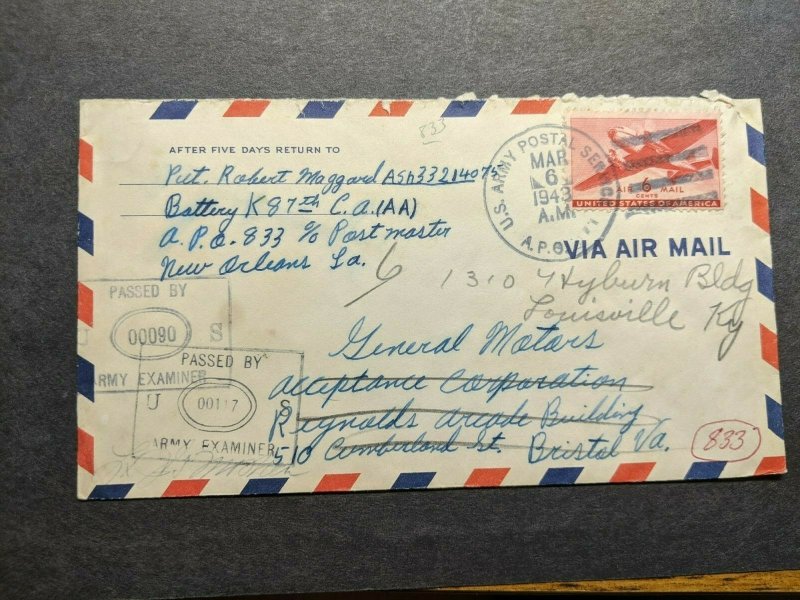 833
AFTER FIVE DAYS RETURN TO
Pvt. Robert Maggard ASN 33214075
Battery K 87th C.A.(AA)
A.P.O. 833 c/o Postmaster
New Orleans La.
U.S. ARMY POSTAL SERVICE
MAR
6
1943
A.M.
A.P.O.
AIR 6 MAIL
CENTS
UNITED STATES OF AMERICA
VIA AIR MAIL
6
1310 Heyburn Bldg
Louisville Ky
PASSED BY
U 00090 S
ARMY EXAMINER
PASSED BY
U 00117 S
ARMY EXAMINER
General Motors
Acceptance Corporation
Reynolds Arcade Building
510 Cumberland St. Bristol Va.
833